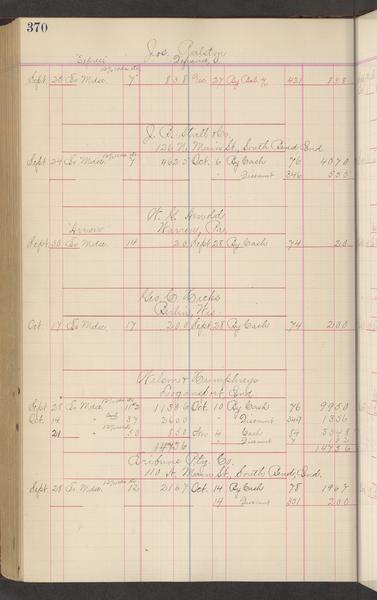 370
Jos. Ralston
Defiance, O.
Sept. 23 To Mdse. 7 8 38 Dec. 27 By Bal. 421 8 38
126 N. Main St., South Bend Ind
Sept. 24 To Mdse. 7 46 25 Oct. 6 By Cash 76 40 70
" Discount 346 5 55
W. S. Arnold
Warren, Pa.
Sept. 30 To Mdse. 14 20 Sept. 28 By Cash 74 20
Geo. C. Hicks
Berlin, Wis.
Oct. 17 To Mdse. 17 2 00 Sept. 28 By Cash 74 2 00
Wilson & Humphreys
Logansport Ind
Sept. 28 To Mdse. 112 113 86 Oct. 10 By Cash 76 99 50
Oct. 14 " 37 26 00 Discount 349 13 36
21 " 50 8 50 Nov. 4 Cash 84
147 36 Discount 147 36
Tribune Ptg Co.
110 St. Main St., South Bend, Ind.
Sept. 28 To Mdse. 12 21 67 Oct. 14 By Cash 78 19 67
14 Discount 351 2 00